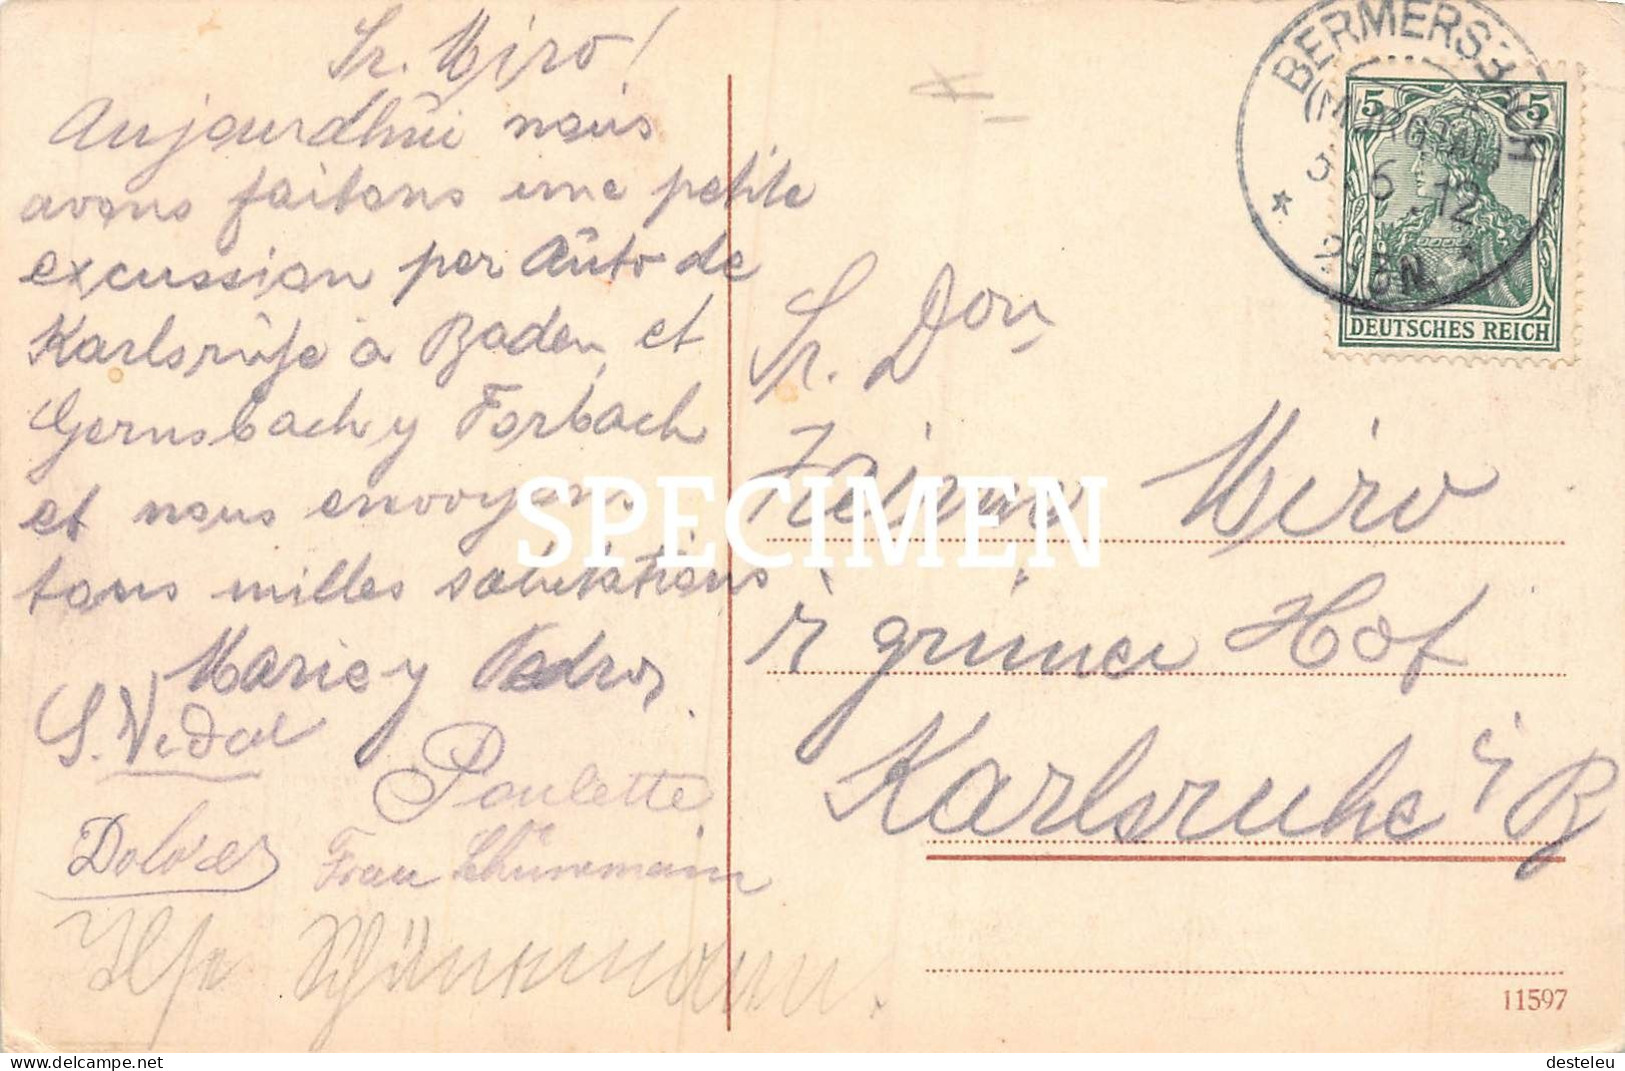 Sr. Miro!
Aujourdhûi nous
avons faitons une petite
excussion per Aûto de
Karlsrûhe a Baden, et
Gernsbach y Forbach
et nous envoyons
tous milles salutations
Marie y Pedro.
S. Vidal
Paulette
Dolores
Frau Schünemann
Ilse Schünemann.
BERMERSBACH
(MURGTHAL)
6.12
5 5
DEUTSCHES REICH
Sr. Don
Miro
grüner Hof
Karlsruhe i B
11597
SPECIMEN
desteleu
https://www.delcampe.net